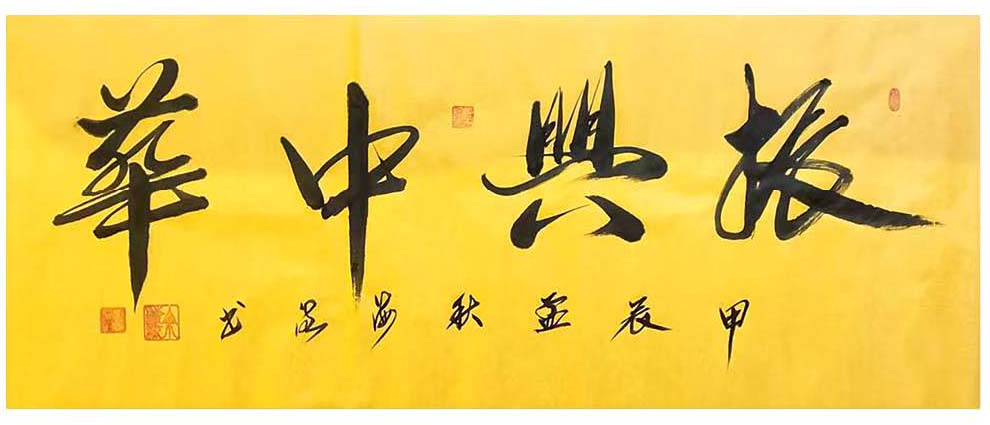 振興中華
甲辰孟秋海岩书